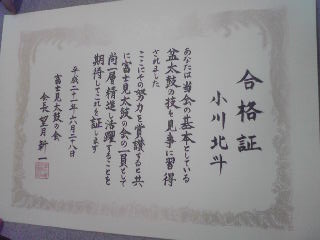 合格証
小川北斗
あなたは当会の基本としている
盆太鼓の技を見事に習得
されました
ここにその努力を賞讃すると共
に富士見太鼓の会の一員として
尚一層精進し活躍することを
期待してこれを証します
平成二十一年六月二十八日
富士見太鼓の会
会長 望月新一